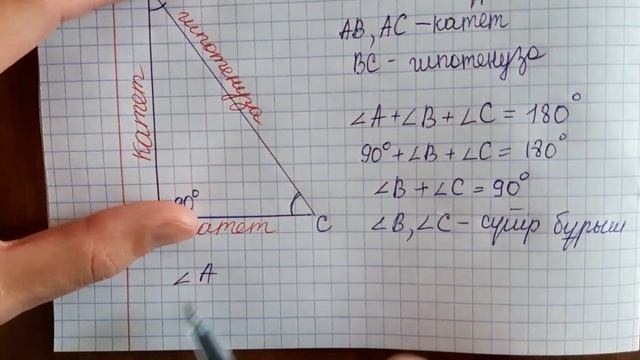 гипотенуза
катет
90°
катет
C
∠A
AB, AC – катет
BC – гипотенуза
∠A + ∠B + ∠C = 180°
90° + ∠B + ∠C = 180°
∠B + ∠C = 90°
∠B, ∠C – сүйір бұрыш